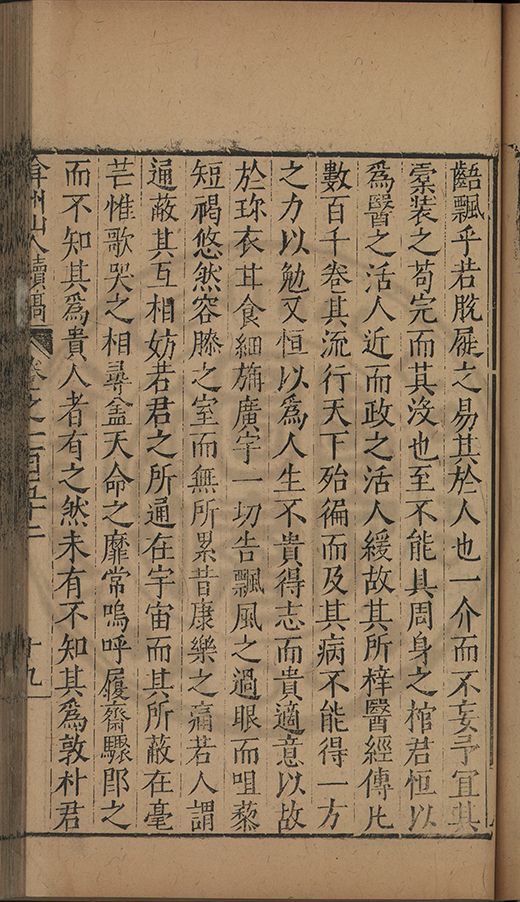 齬飄乎若脫屣之易其於人也一介而不妄予宜其
橐装之苟完而其沒也至不能具周身之棺君恒以
為醫之活人近而政之活人緩故其所梓醫經傳片
數百千卷其流行天下殆徧而及其病不能得一方
之力以勉又恒以為人生不貴得志而貴適意以故
於珎衣甘食細旃廣宇一切告飄風之過眼而咀藜
短褐悠然容膝之室而無所累昔康樂之誦若人謂
通蔽其互相妨若君之所通在宇宙而其所蔽在毫
芒惟歌哭之相尋盍天命之靡常嗚呼履齋驟郎之
而不知其為貴人者有之然未有不知其為敦朴君
弇州山人續稿 卷之一百五十二 十九